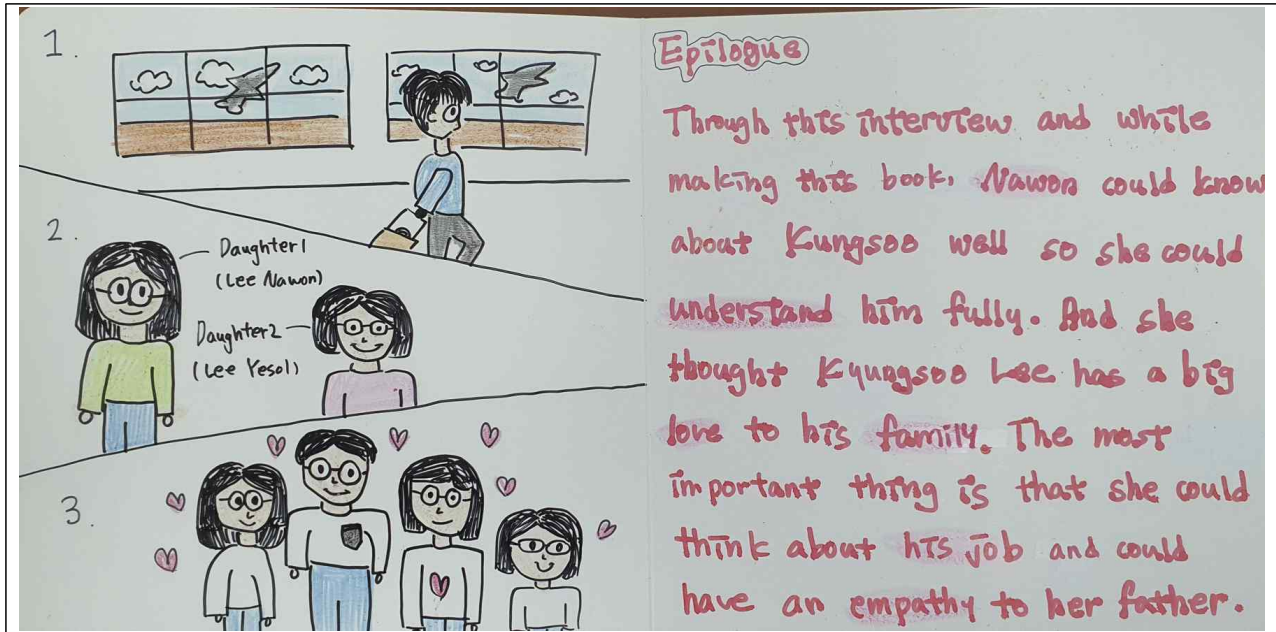 1.
2.
Daughter1
(Lee Nawon)
Daughter2
(Lee Yesol)
3.
Epilogue
Through this interview and while
making this book, Nawon could know
about Kungsoo well so she could
understand him fully. And she
thought Kyungsoo Lee has a big
love to his family. The most
important thing is that she could
think about his job and could
have an empathy to her father.